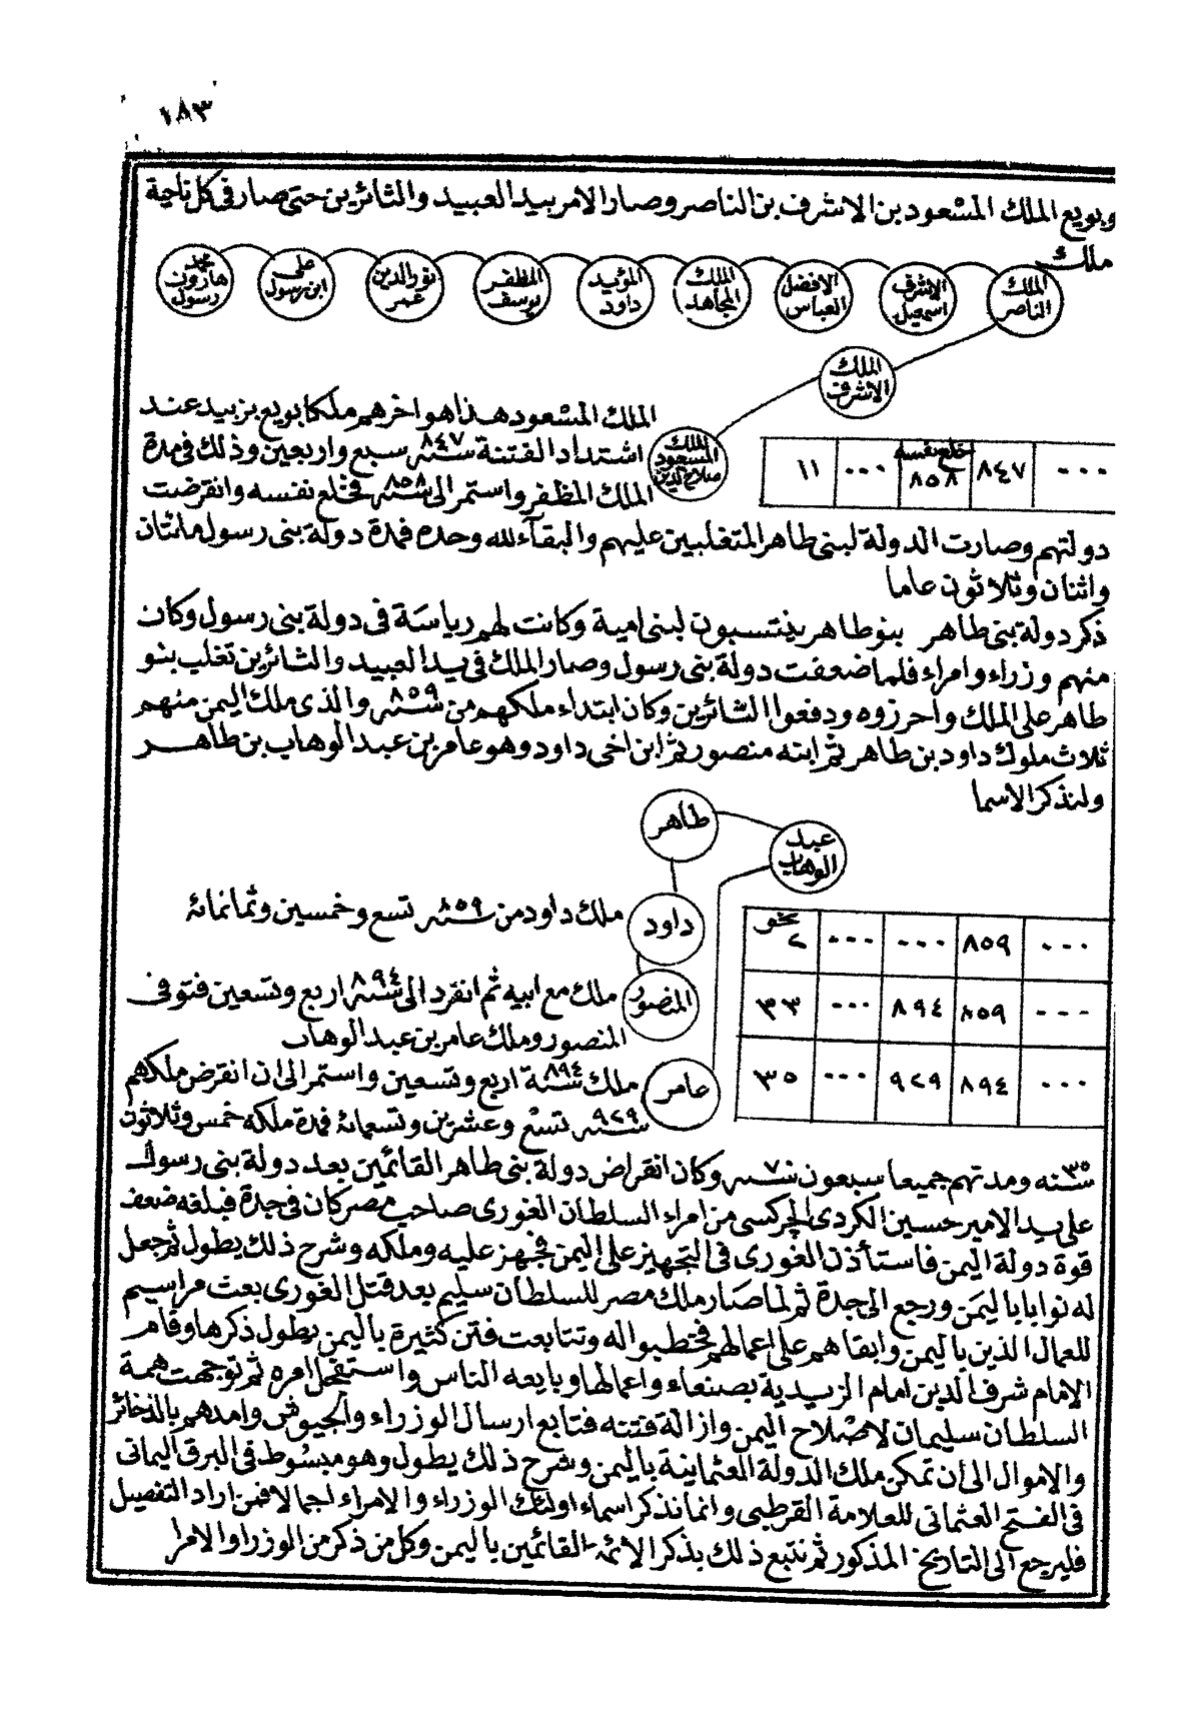 ١٨٣
وبويع الملك المسعود بن الاشرف بن الناصر وصار الامر بيد العبيد والثائرين حتى صار فى كل ناحية
ملك
الملك الناصر
الاشرف اسمعيل
الافضل العباس
الملك المجاهد
المؤيد داود
المظفر يوسف
نور الدين عمر
على ابن رسول
محمد هارون رسول
الملك الاشرف
الملك المسعود صلاح الدين
٠٠٠ ٨٤٧ خلع نفسه ٨٥٨ ٠٠٠ ١١
الملك المسعود هذا هو اخرهم ملكا بويع بزبيد عند
اشتداد الفتنة سنة ٨٤٧ سبع واربعين وذلك فى مدة
الملك المظفر واستمر الى سنة ٨٥٨ فخلع نفسه وانقرضت
دولتهم وصارت الدولة لبنى طاهر المتغلبين عليهم والبقآء لله وحده فمدة دولة بنى رسول مائتان
واثنان وثلاثون عاما
ذكر دولة بنى طاهر بنو طاهر ينتسبون لبنى امية وكانت لهم رياسة فى دولة بنى رسول وكان
منهم وزراء وامراء فلما ضعفت دولة بنى رسول وصار الملك فى يد العبيد والثائرين تغلب بنو
طاهر على الملك واحرزوه ودفعوا الثائرين وكان ابتداء ملكهم من سنة ٨٥٩ والذى ملك اليمن منهم
ثلاث ملوك داود بن طاهر ثم ابنه منصور ثم ابن اخى داود وهو عامر بن عبد الوهاب بن طاهر
ولنذكر الاسما
طاهر
عبد الوهاب
داود
ملك داود من سنة ٨٥٩ تسع وخمسين وثمانمائة
٠٠٠ ٨٥٩ ٠٠٠ ٠٠٠ نحو ٢
المنصور
ملك مع ابيه ثم انفرد الى سنة ٨٩٤ اربع وتسعين فتوفى
المنصور وملك عامر بن عبد الوهاب
٠٠٠ ٨٥٩ ٨٩٤ ٠٠٠ ٣٣
عامر
ملك سنة ٨٩٤ اربع وتسعين واستمر الى ان انقرض ملكهم
سنة ٩٢٩ تسع وعشرين وتسعمائة فمدة ملكه خمس وثلاثون
٠٠٠ ٨٩٤ ٩٢٩ ٠٠٠ ٣٥
سنه ٣٥ ومدتهم جميعا سبعون سنة ٧٠ وكان انقراض دولة بنى طاهر القائمين بعد دولة بنى رسول
على يد الامير حسين الكردى الجركسى من امراء السلطان الغورى صاحب مصر كان فى جدة فبلغه ضعف
قوة دولة اليمن فاستأذن الغورى فى التجهيز على اليمن فجهز عليه وملكه وشرح ذلك يطول ثم جعل
له نوابا باليمن ورجع الى جدة ثم لما صار ملك مصر للسلطان سليم بعد قتل الغورى بعث مراسيم
للعمال الذين باليمن وابقاهم على اعمالهم فخطبوا له وتتابعت فتن كثيرة باليمن يطول ذكرها وقام
الامام شرف الدين امام الزيدية بصنعاء واعمالها وبايعه الناس واستفحل امره ثم توجهت همة
السلطان سليمان لاصلاح اليمن وازالة فتنه فتابع ارسال الوزراء والجيوش وامدهم بالذخائر
والاموال الى ان تمكن ملك الدولة العثمانية باليمن وشرح ذلك يطول وهو مبسوط فى البرق اليمانى
فى الفتح العثمانى للعلامة القرطبى وانما نذكر اسماء اولئك الوزراء والامراء اجمالا فمن اراد التفصيل
فليرجع الى التاريخ المذكور ثم نتبع ذلك بذكر الائمة القائمين باليمن وكل من ذكر من الوزرا والامرا